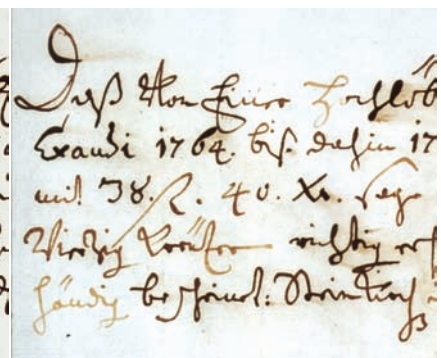 Daß Von Einer Hochlöb
Exaudi 1764. biß dahin 17
mit 38. f. 40. Xr. sage
Vierzig Kreutzer richtig er
händig bescheinet: Steinkirch